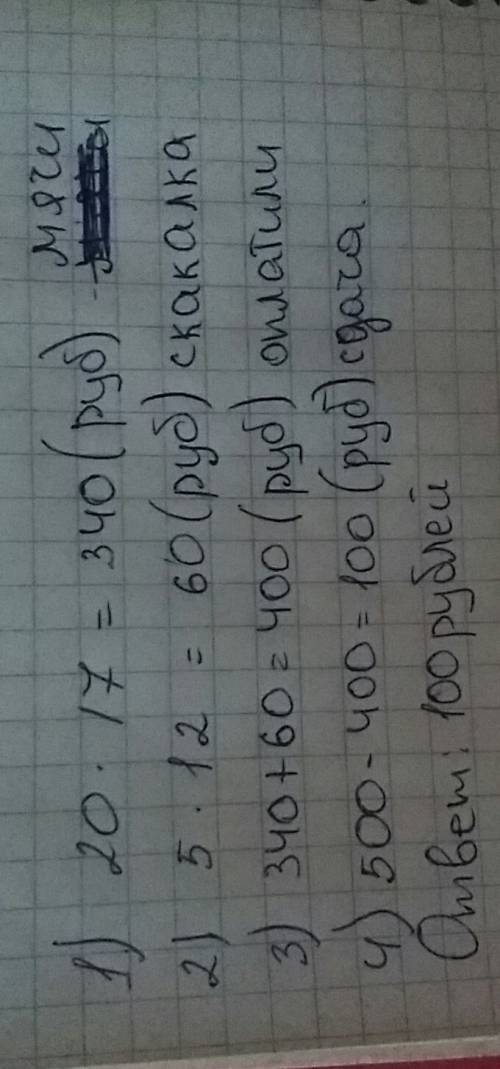 1) 20 · 17 = 340 (руб) - мячи
2) 5 · 12 = 60 (руб) скакалка
3) 340 + 60 = 400 (руб) оплатили
4) 500 - 400 = 100 (руб) сдача.
Ответ: 100 рублей